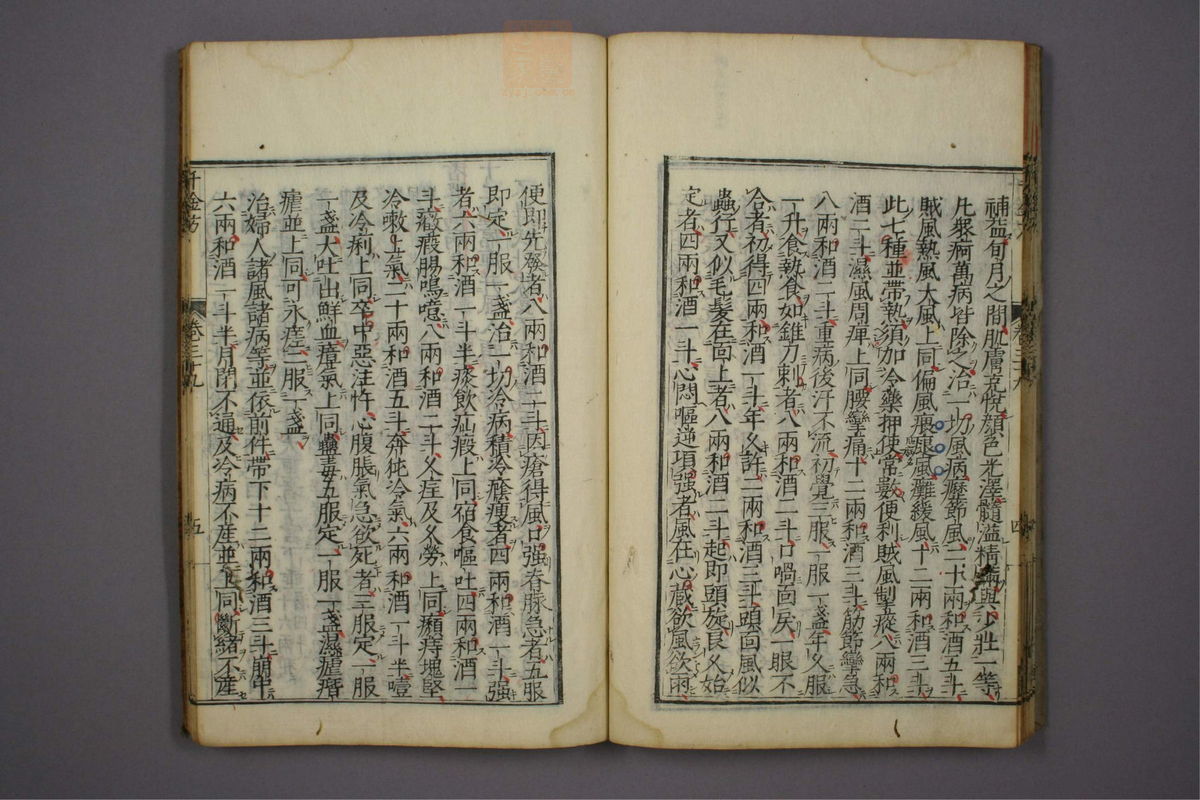 補益旬月之間肌膚充悅顏色光澤髓溢精滿與少壯一等
凡衆痾萬病皆除之治一切風病癧節風二十兩和酒五斗
賊風熱風大風上同偏風痿腿風攤緩風十二兩和酒三斗
此七種並帶熱須加冷藥押使常數便利賊風掣瘲八兩和
酒二斗濕風周痺上同腰攣痛十二兩和酒三斗筋節攣急
八兩和酒二斗重病後汗不流初覺三服一服一盞年久服
一升食熱食如錐刀刺者八兩和酒二斗口喎面戾一眼不
合者初得四兩和酒一斗年久許二兩和酒三斗頭面風似
蟲行又似毛髮在面上者八兩和酒二斗起即頭旋良久始
定者四兩和酒一斗心悶嘔逆項強者風在心藏欲風欲雨
千金方
卷三十九
四
便即先發者八兩和酒二斗因瘡得風口強脊脉急者五服
即定一服一盞治一切冷病積冷癊瘦者四兩和酒一斗強
者六兩和酒一斗半痰飲疝瘕上同宿食嘔吐四兩和酒一
斗癥瘕腸鳴噫八兩和酒二斗久疰及久勞上同癩痔塊堅
冷嗽上氣二十兩和酒五斗奔㹠冷氣六兩和酒一斗半噎
及冷痢上同卒中惡注忤心腹脹氣急欲死者三服定一服
一盞大吐出鮮血瘴氣上同蠱毒五服定一服一盞濕瘧瘖
瘧並上同可永痊二服一盞
治婦人諸風諸病等並依前件帶下十二兩和酒三斗崩中
六兩和酒一斗半月閉不通及冷病不產並上同斷緒不產
千金方
卷三十九
五